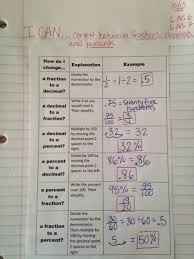 I CAN... convert between fractions, decimals,
and percents
How do I change...
Explanation
Example
a fraction to a decimal?
Divide the numerator by the denominator.
1/2 = 1÷2 = .5
a decimal to a fraction?
Write it as you would read it. Then simplify.
.75 = seventy five hundredths
75/100 = 3/4
a decimal to a percent?
Multiply by 100 by moving the decimal point 2 spaces to the right.
.32 = 32%
.32 = 32
a percent to a decimal?
Divide by 100 by moving the decimal point 2 spaces to the left.
86% = .86
.86
a percent to a fraction?
Write the percent over 100. Then simplify.
95% = 95/100
a fraction to a percent?
Divide the numerator by the denominator. Then multiply by 100 by moving the decimal point 2 spaces to the right.
30/60 = 30÷60 = .5
50%